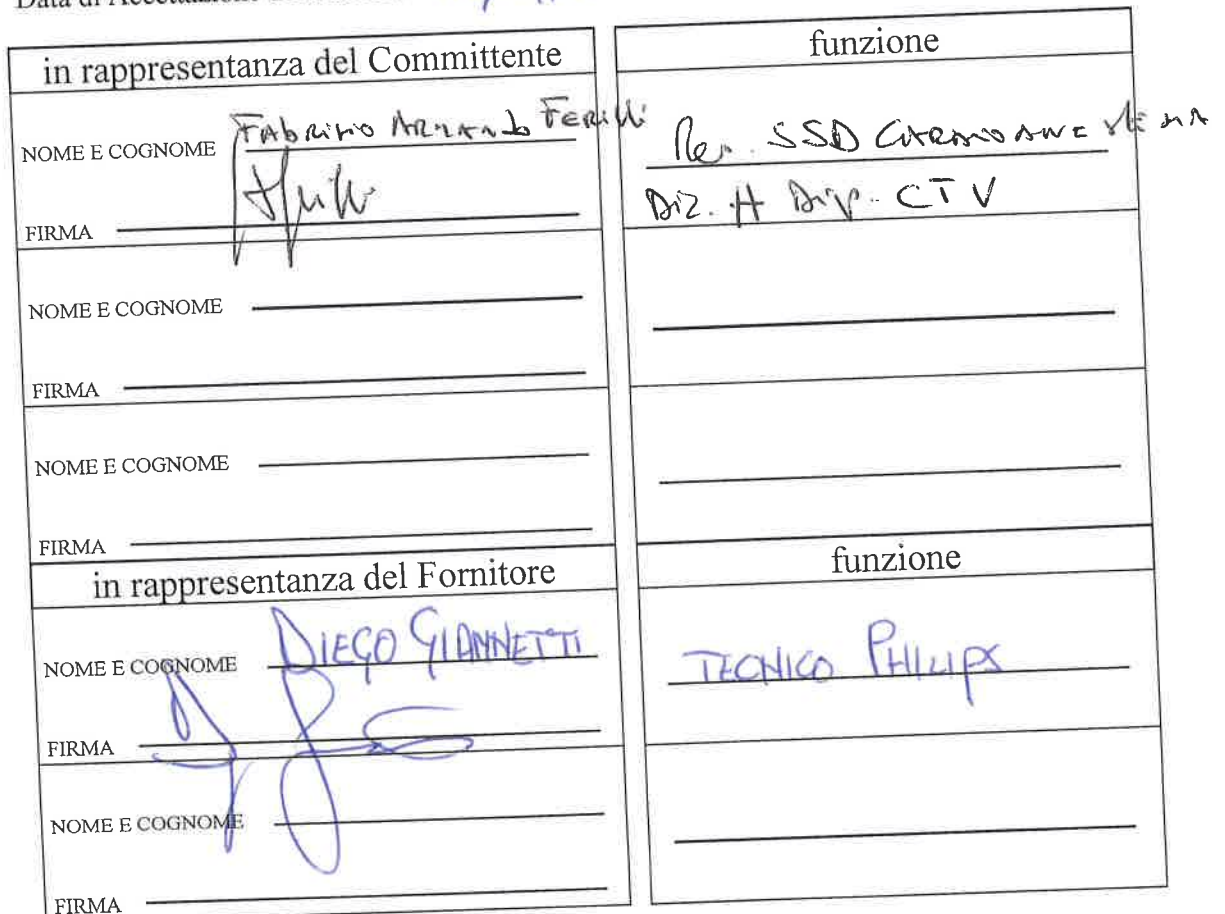 Data di Accettazione
in rappresentanza del Committente
funzione
NOME E COGNOME Fabrizio Armando Ferilli
FIRMA
Res. SSD
Diz. H Dip. CTV
NOME E COGNOME
FIRMA
NOME E COGNOME
FIRMA
in rappresentanza del Fornitore
funzione
NOME E COGNOME DIEGO GIANNETTI
TECNICO PHILIPS
FIRMA
NOME E COGNOME
FIRMA